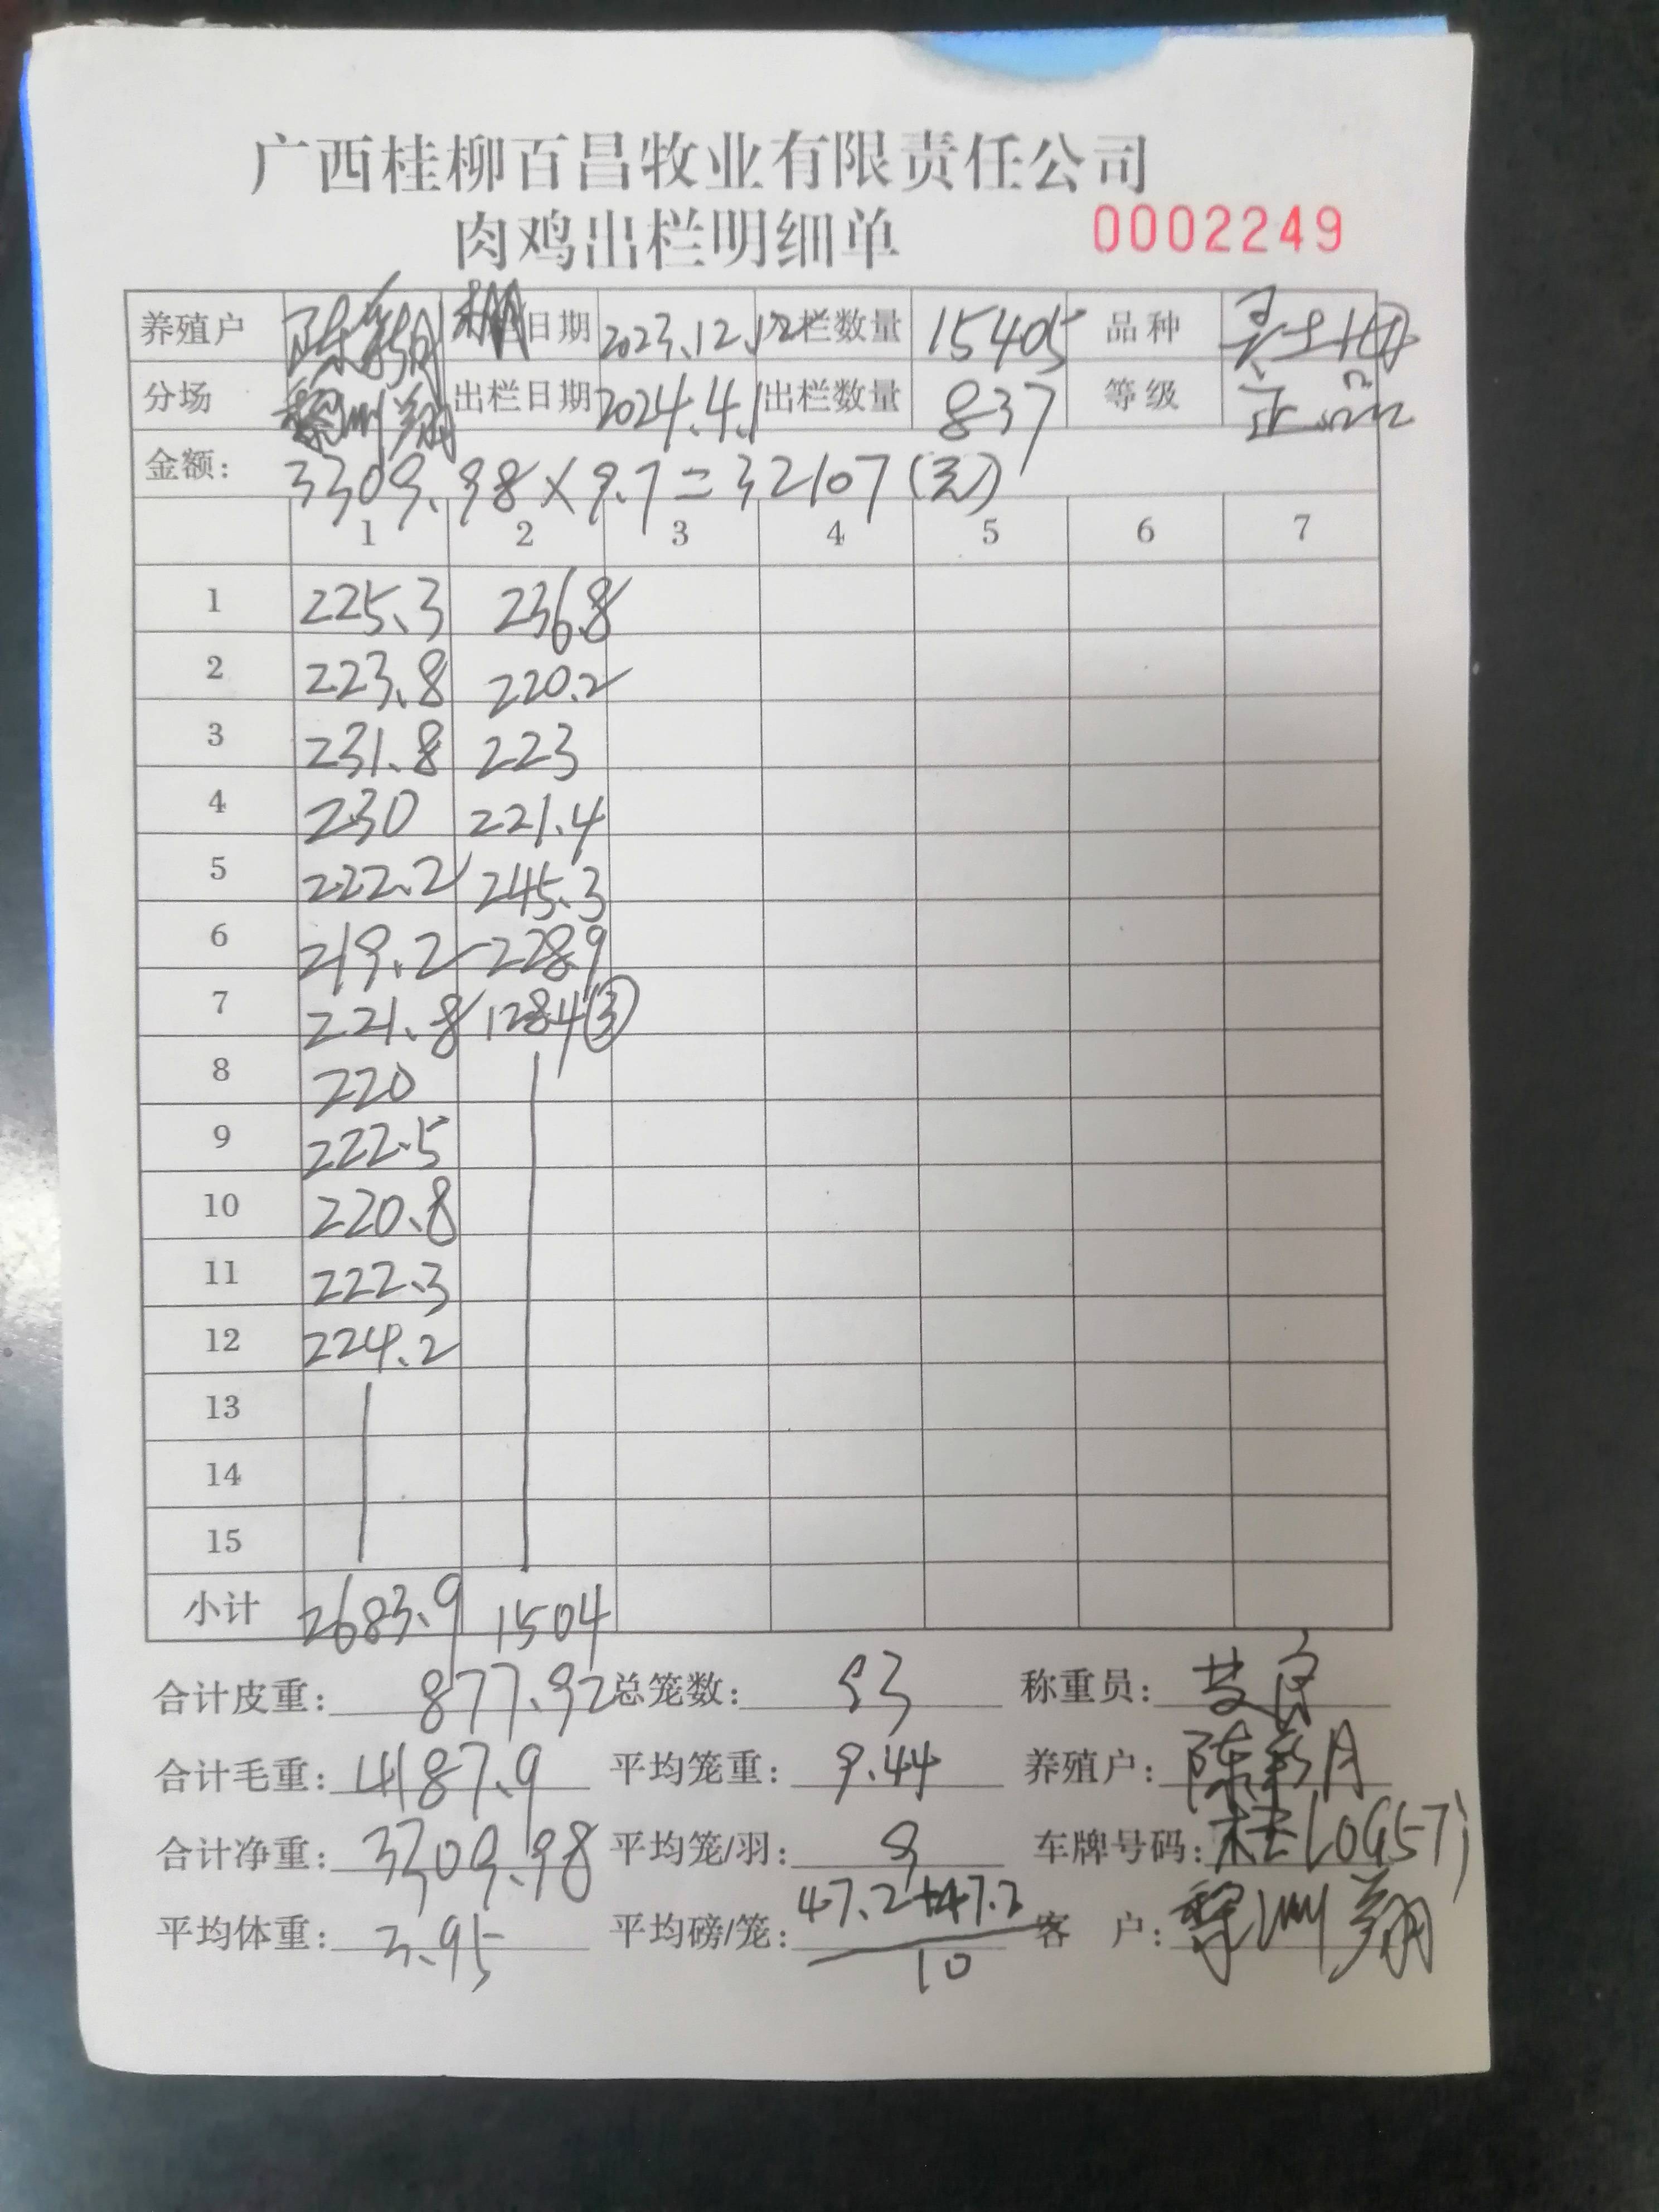 广西桂柳百昌牧业有限责任公司
肉鸡出栏明细单 0002249
养殖户 日期 2023.12.12 栏数量 15405 品种
分场 出栏日期 2024.4.1 出栏数量 837 等级 正品
金额: 3309.98×9.7=32107(元)
1 2 3 4 5 6 7
1 225.3 236.8
2 223.8 220.2
3 231.8 223
4 230 221.4
5 222.2 245.3
6 219.2 228.9
7 221.8 128.4 ③
8 220
9 222.5
10 220.8
11 222.3
12 224.2
13
14
15
小计 2683.9 1504
合计皮重: 877.92 总笼数: 93 称重员:
合计毛重: 4187.9 平均笼重: 9.44 养殖户: 陈彩月
合计净重: 3309.98 平均笼/羽: 9 车牌号码:
平均体重: 3.95 平均磅/笼: 47.2+47.2 客 户:
10